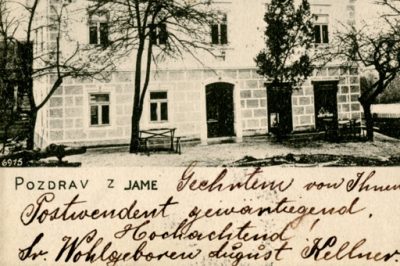 6915
POZDRAV Z JAME Geehrtem von Ihnen
Postwendent gewärtiegend,
Hochachtend
Sr. Wohlgeboren August Kellner.